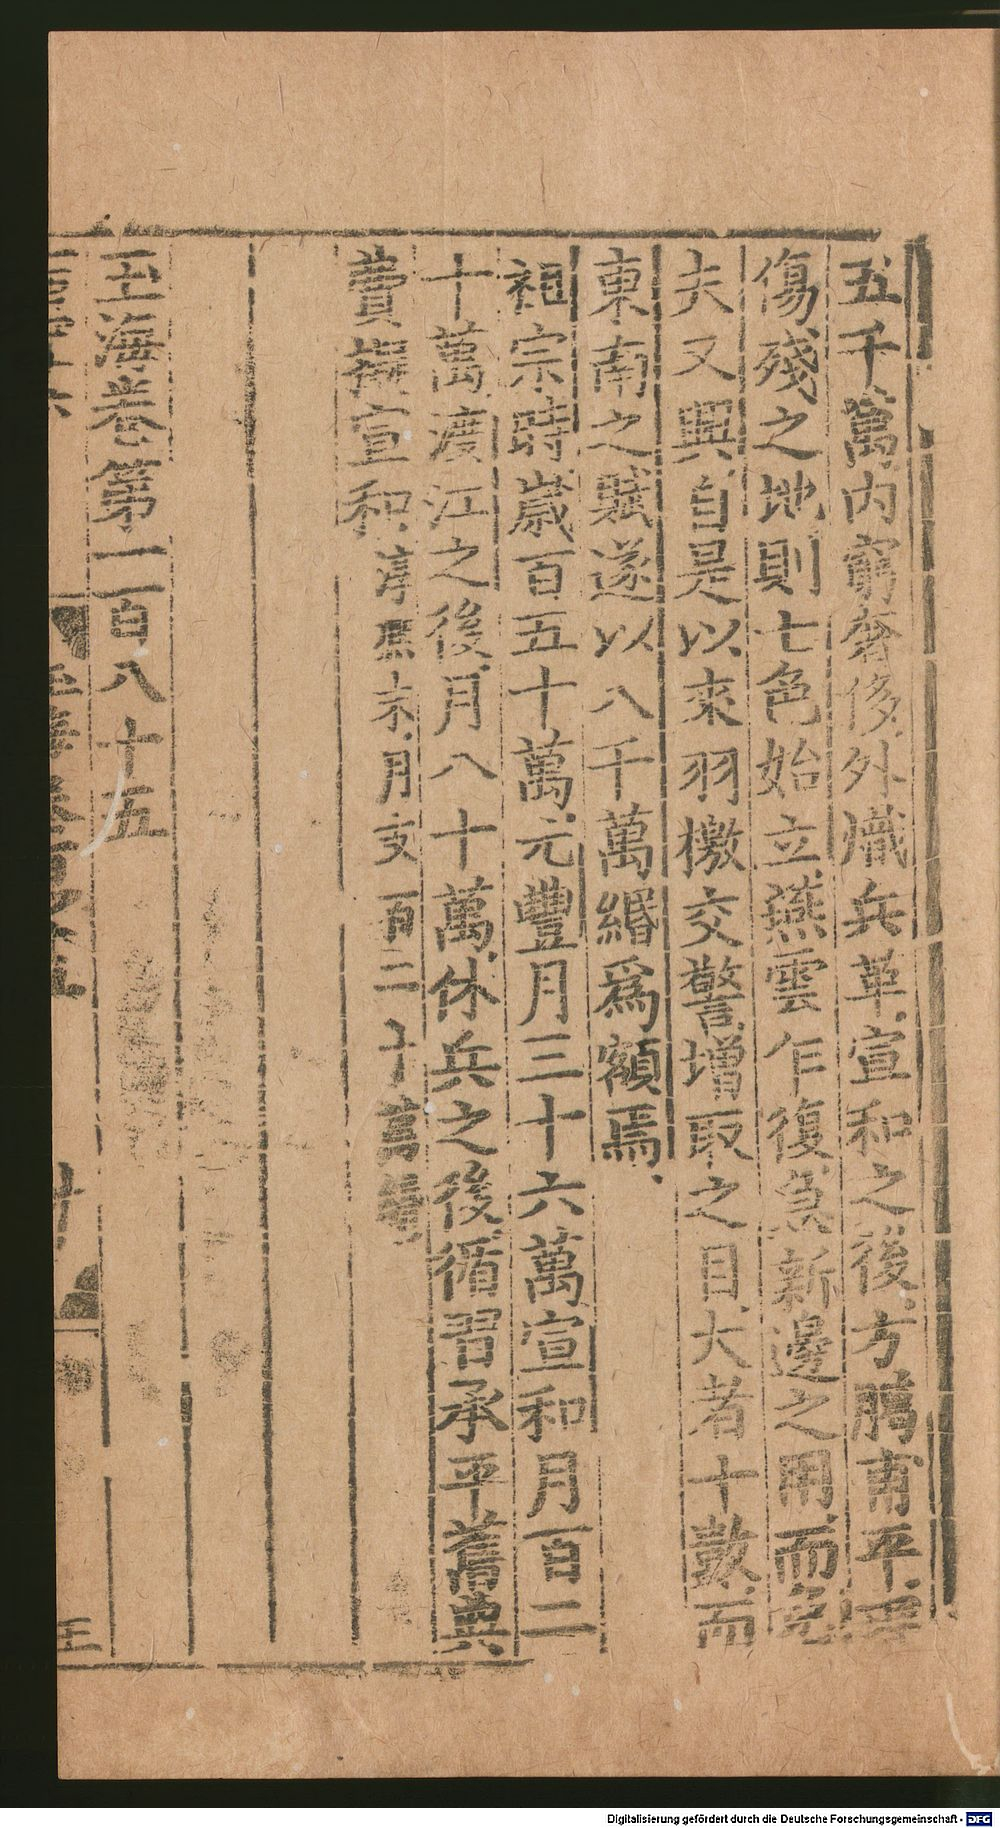 五千萬内窮奢侈外熾兵革宣和之後方臘甫平
傷殘之地則七色始立燕雲乍復急新邊之用而
夫又興自是以來羽檄交警增取之目大者十數而
東南之賦遂以八千萬緡爲額焉
祖宗時歲百五十萬元豐月三十六萬宣和月百二
十萬渡江之後月八十萬休兵之後循習承平舊典
費擬宣和淳熙末月支百二十萬
玉海卷第一百八十五
Digitalisierung gefördert durch die Deutsche Forschungsgemeinschaft - DFG